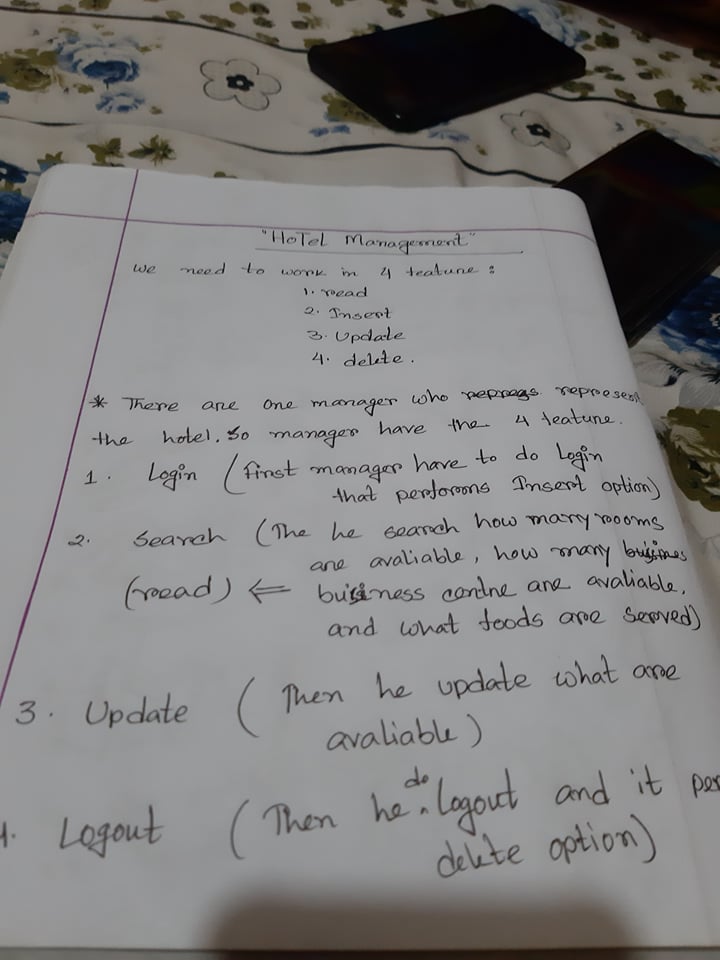 "HoTel Management"
we need to work in 4 feature :
1. read
2. Insert
3. Update
4. delete.
* There are one manager who represent
the hotel. So manager have the 4 feature.
1. Login (first manager have to do Login
that performs Insert option)
2. Search (The he search how many rooms
are avaliable, how many
(read) ⇐ business centre are avaliable,
and what foods are served)
3. Update (Then he update what are
avaliable)
4. Logout (Then he do logout and it per
delete option)